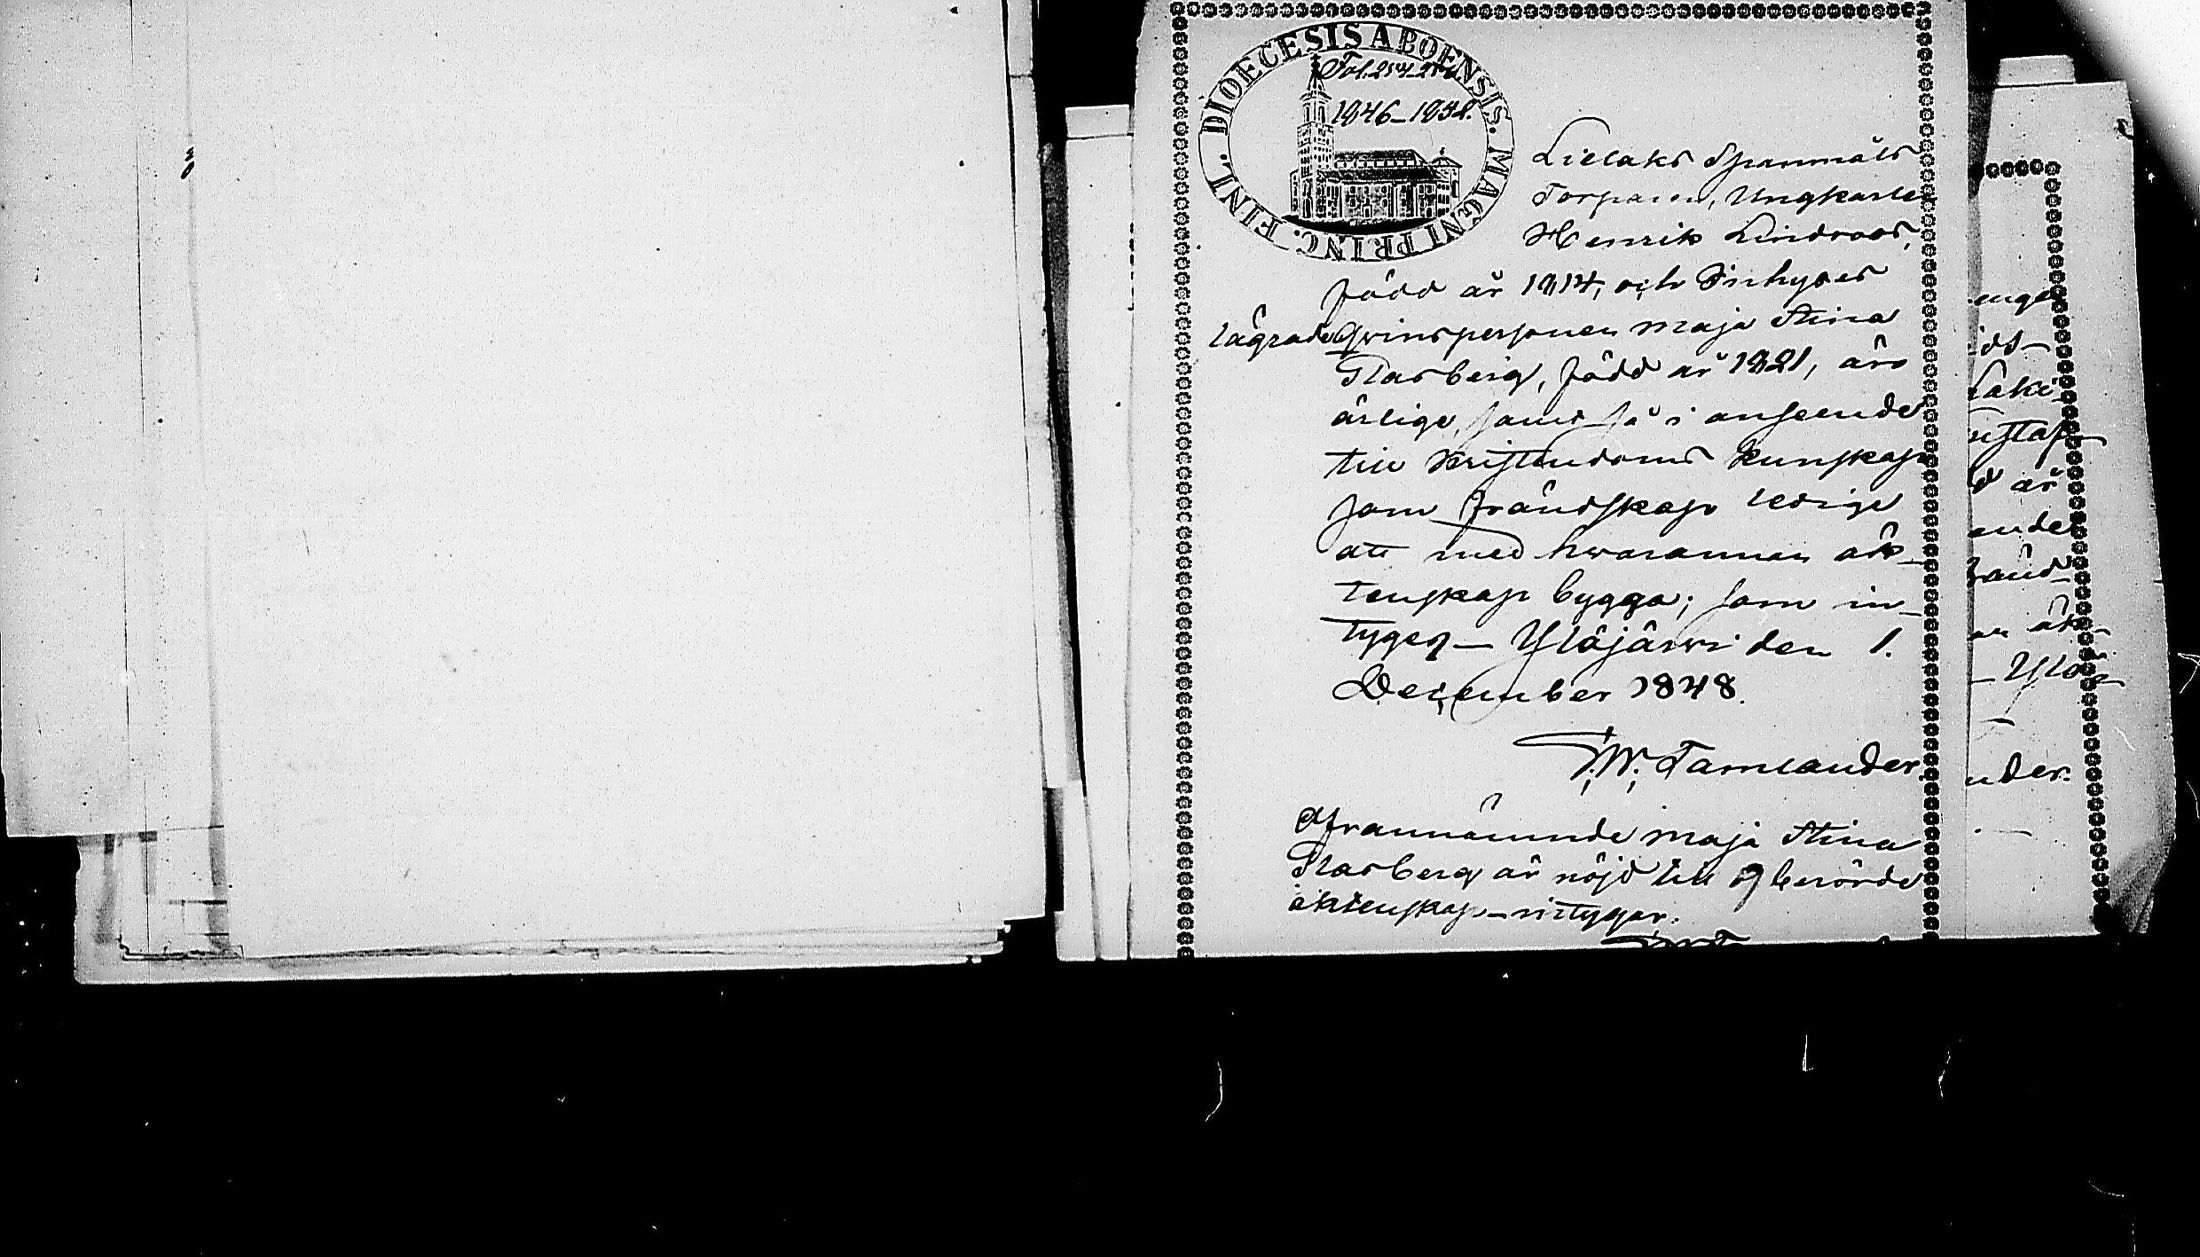 DIOECESIS ABOENSIS. MAGNI PRINC. FINL.
Fol. 254
1846–1852.
Lielaks Spanmåls
Torparen, Ungkarlen
Henrik Lindroos,
född år 1814, och Inhyses
lägrade Qvinspersonen Maja Stina
Flasberg, född år 1821, äro
ärlige, samt så i anseende
till Kristendoms Kunskap
som frändskap ledige
att med hwarannan äk-
tenskap bygga; som in-
tygeg— Ylöjärvi den 1.
December 1848.
Tamlander.
Ofvannämnde Maja Stina
Flasberg är nöjd till of berörde
äktenskap–intygar.
enge
ds
laki
ustaf
d år
ende
fränd
äk-
— Ylö-
nder.